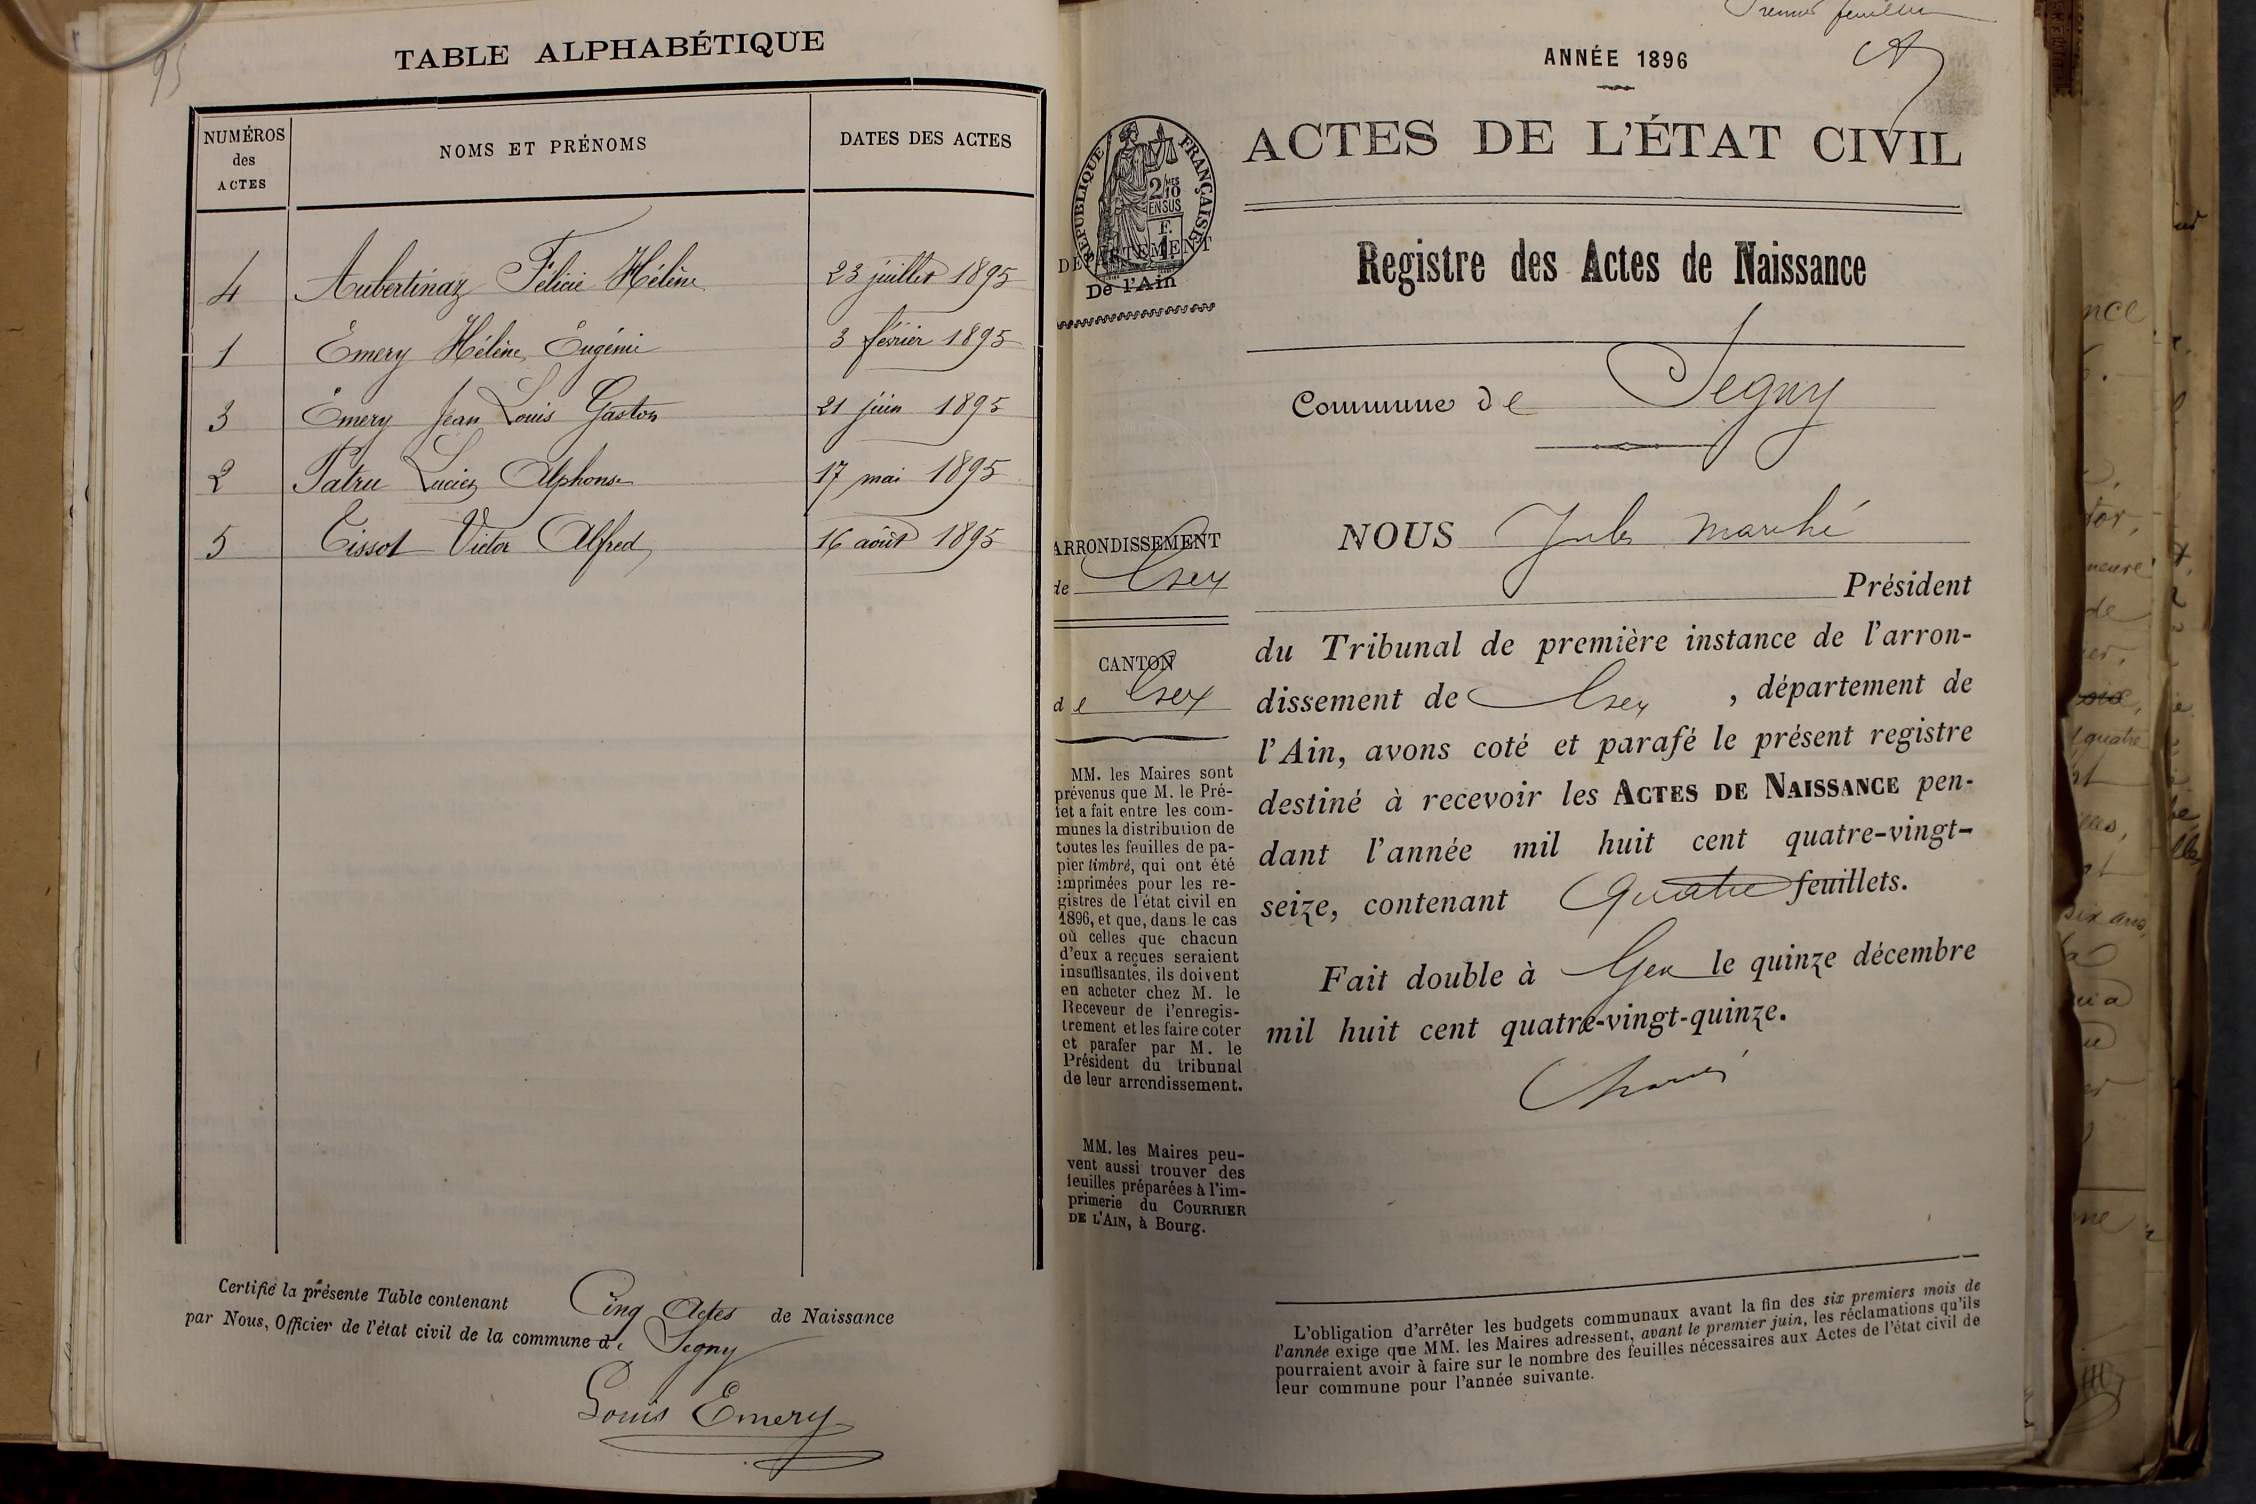 95
TABLE ALPHABÉTIQUE
NUMÉROS
des
ACTES
NOMS ET PRÉNOMS
DATES DES ACTES
4 Aubertinaz Félicie Hélène 23 juillet 1895
1 Emery Hélène Eugénie 3 février 1895
3 Emery Jean Louis Gaston 21 juin 1895
2 Patru Lucien Alphonse 17 mai 1895
5 Tissot Victor Alfred 16 août 1895
Certifié la présente Table contenant Cinq Actes de Naissance
par Nous, Officier de l'état civil de la commune de Segny
Louis Emery
Premier feuillet
ANNÉE 1896
ACTES DE L'ÉTAT CIVIL
RÉPUBLIQUE FRANÇAISE
2/10MES
EN SUS
F.
1
DÉPARTEMENT
De l'Ain
Registre des Actes de Naissance
Commune de Segny
ARRONDISSEMENT
de Gex
CANTON
de Gex
MM. les Maires sont
prévenus que M. le Pré-
fet a fait entre les com-
munes la distribution de
toutes les feuilles de pa-
pier timbré, qui ont été
imprimées pour les re-
gistres de l'état civil en
1896, et que, dans le cas
où celles que chacun
d'eux a reçues seraient
insuffisantes, ils doivent
en acheter chez M. le
Receveur de l'enregis-
trement et les faire coter
et parafer par M. le
Président du tribunal
de leur arrondissement.
MM. les Maires peu-
vent aussi trouver des
feuilles préparées à l'im-
primerie du COURRIER
DE L'AIN, à Bourg.
NOUS Jules Marché
Président
du Tribunal de première instance de l'arron-
dissement de Gex, département de
l'Ain, avons coté et parafé le présent registre
destiné à recevoir les ACTES DE NAISSANCE pen-
dant l'année mil huit cent quatre-vingt-
seize, contenant Quatre feuillets.
Fait double à Gex le quinze décembre
mil huit cent quatre-vingt-quinze.
L'obligation d'arrêter les budgets communaux avant la fin des six premiers mois de
l'année exige que MM. les Maires adressent, avant le premier juin, les réclamations qu'ils
pourraient avoir à faire sur le nombre des feuilles nécessaires aux Actes de l'état civil de
leur commune pour l'année suivante.